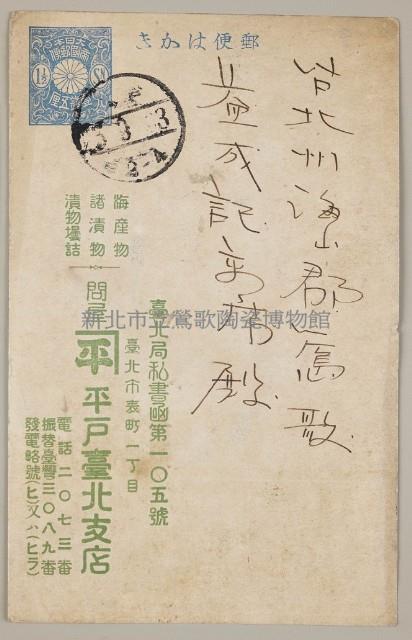 郵便はかき
大日本
帝國郵便
壹錢五厘
1½ Sn
台北州海山郡鶯歌
益成記商店殿
海產物
諸漬物
漬物壜詰
問屋
平
平戶臺北支店
臺北局私書凾第一〇五號
臺北市表町一丁目
電話二〇七三番
振替臺灣三〇八九番
發電略號(ヒ)又ハ(ヒラ)
新北市立鶯歌陶瓷博物館